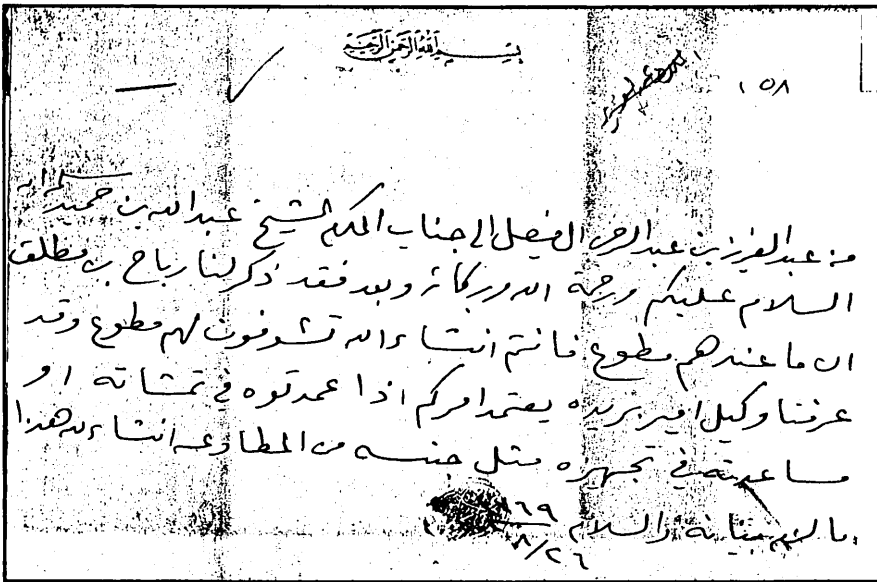 بسم الله الرحمن الرحيم
١٥٨
من عبدالعزيز بن عبدالرحمن الفيصل الى جناب المكرم الشيخ عبدالله بن حميد سلمه الله
السلام عليكم ورحمة الله وبركاته وبعد فقد ذكر لنا رباح بن مطلق
ان ما عندهم مطوع فانتم انشاءالله تشوفون لهم مطوع وقد
عرفنا وكيل امير بريده يعتمد امركم اذا عمدتوه في تمشاته او
مساعدته في تجهيزه مثل جنسه من المطاوعه انشاءالله هذا
مالزم بيانه والسلام
٢٦/٨